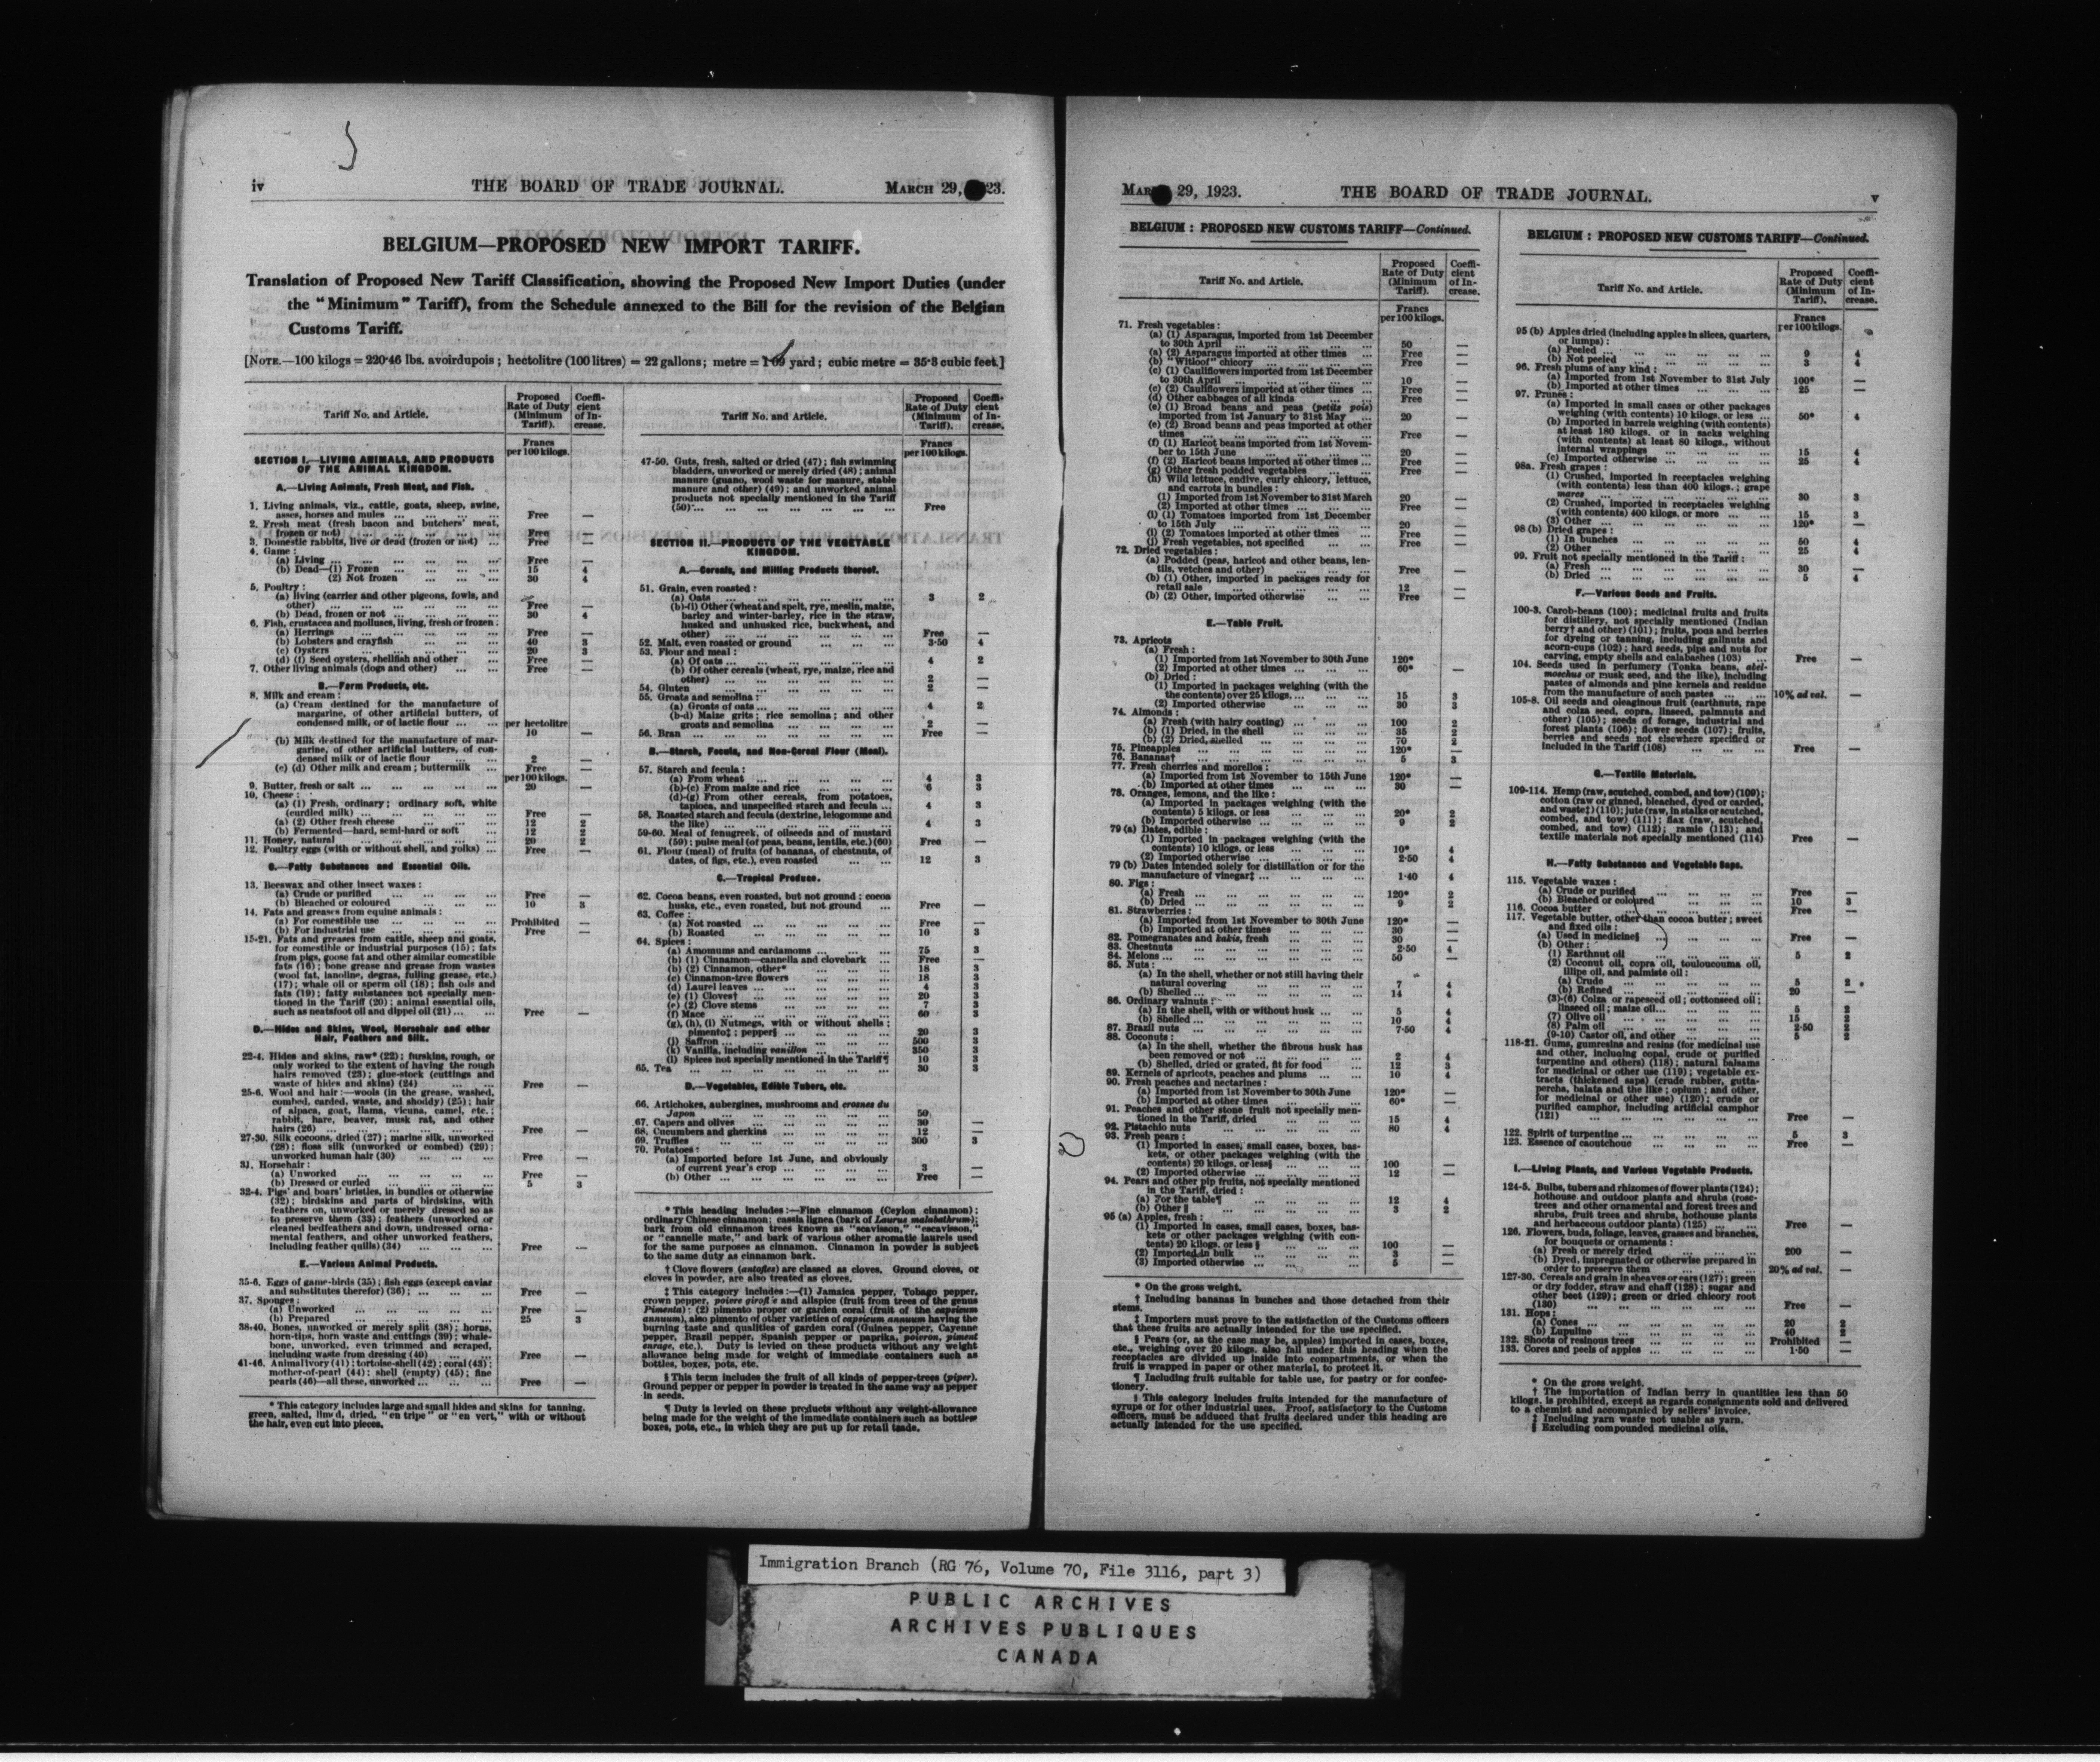 iv THE BOARD OF TRADE JOURNAL. MARCH 29, 23.
BELGIUM—PROPOSED NEW IMPORT TARIFF.
Translation of Proposed New Tariff Classification, showing the Proposed New Import Duties (under
the "Minimum" Tariff), from the Schedule annexed to the Bill for the revision of the Belgian
Customs Tariff.
[NOTE.—100 kilogs = 220·46 lbs. avoirdupois; hectolitre (100 litres) = 22 gallons; metre = 1·09 yard; cubic metre = 35·3 cubic feet.]
Tariff No. and Article.
Proposed
Rate of Duty
(Minimum
Tariff).
Coeffi-
cient
of In-
crease.
Francs
per 100 kilogs.
SECTION I.—LIVING ANIMALS, AND PRODUCTS
OF THE ANIMAL KINGDOM.
A.—Living Animals, Fresh Meat, and Fish.
1. Living animals, viz., cattle, goats, sheep, swine,
asses, horses and mules ... Free —
2. Fresh meat (fresh bacon and butchers' meat,
frozen or not) ... Free —
3. Domestic rabbits, live or dead (frozen or not) ... Free —
4. Game:
(a) Living ... Free —
(b) Dead—(1) Frozen ... 15 4
(2) Not frozen ... 30 4
5. Poultry:
(a) living (carrier and other pigeons, fowls, and
other) ... Free —
(b) Dead, frozen or not ... 30 4
6. Fish, crustacea and molluscs, living, fresh or frozen:
(a) Herrings ... Free —
(b) Lobsters and crayfish ... 40 3
(c) Oysters ... 20 3
(d) (f) Seed oysters, shellfish and other ... Free —
7. Other living animals (dogs and other) ... Free —
B.—Farm Products, etc.
8. Milk and cream:
(a) Cream destined for the manufacture of
margarine, of other artificial butters, of
condensed milk, or of lactic flour ... per hectolitre
10 —
(b) Milk destined for the manufacture of mar-
garine, of other artificial butters, of con-
densed milk or of lactic flour ... 2 —
(c) (d) Other milk and cream; buttermilk ... Free —
per 100 kilogs.
9. Butter, fresh or salt ... 20 —
10. Cheese:
(a) (1) Fresh, ordinary; ordinary soft, white
(curdled milk) ... Free —
(a) (2) Other fresh cheese ... 12 2
(b) Fermented—hard, semi-hard or soft ... 12 2
11. Honey, natural ... 20 2
12. Poultry eggs (with or without shell, and yolks) ... Free —
C.—Fatty Substances and Essential Oils.
13. Beeswax and other insect waxes:
(a) Crude or purified ... Free —
(b) Bleached or coloured ... 10 3
14. Fats and greases from equine animals:
(a) For comestible use ... Prohibited —
(b) For industrial use ... Free —
15-21. Fats and greases from cattle, sheep and goats,
for comestible or industrial purposes (15); fats
from pigs, goose fat and other similar comestible
fats (16); bone grease and grease from wastes
(wool fat, lanoline, degras, fulling grease, etc.)
(17); whale oil or sperm oil (18); fish oils and
fats (19); fatty substances not specially men-
tioned in the Tariff (20); animal essential oils,
such as neatsfoot oil and dippel oil (21) ... Free —
D.—Hides and Skins, Wool, Horsehair and other
Hair, Feathers and Silk.
22-4. Hides and skins, raw* (22); furskins, rough, or
only worked to the extent of having the rough
hairs removed (23); glue-stock (cuttings and
waste of hides and skins) (24) ... Free —
25-6. Wool and hair:—wools (in the grease, washed,
combed, carded, waste, and shoddy) (25); hair
of alpaca, goat, llama, vicuna, camel, etc.;
rabbit, hare, beaver, musk rat, and other
hairs (26) ... Free —
27-30. Silk cocoons, dried (27); marine silk, unworked
(28); floss silk (unworked or combed) (29);
unworked human hair (30) ... Free —
31. Horsehair:
(a) Unworked ... Free —
(b) Dressed or curled ... 5 3
32-4. Pigs' and boars' bristles, in bundles or otherwise
(32); birdskins and parts of birdskins, with
feathers on, unworked or merely dressed so as
to preserve them (33); feathers (unworked or
cleaned bedfeathers and down, undressed orna-
mental feathers, and other unworked feathers,
including feather quills) (34) ... Free —
E.—Various Animal Products.
35-6. Eggs of game-birds (35); fish eggs (except caviar
and substitutes therefor) (36); ... Free —
37. Sponges:
(a) Unworked ... Free —
(b) Prepared ... 25 3
38-40. Bones, unworked or merely split (38); horns,
horn-tips, horn waste and cuttings (39); whale-
bone, unworked, even trimmed and scraped,
including waste from dressing (40) ... Free —
41-46. Animal ivory (41); tortoise-shell (42); coral (43);
mother-of-pearl (44); shell (empty) (45); fine
pearls (46)—all these, unworked ... Free —
* This category includes large and small hides and skins for tanning,
green, salted, limed, dried, "en tripe" or "en vert," with or without
the hair, even cut into pieces.
Tariff No. and Article.
Proposed
Rate of Duty
(Minimum
Tariff).
Coeffi-
cient
of In-
crease.
Francs
per 100 kilogs.
47-50. Guts, fresh, salted or dried (47); fish swimming
bladders, unworked or merely dried (48); animal
manure (guano, wool waste for manure, stable
manure and other) (49); and unworked animal
products not specially mentioned in the Tariff
(50) ... Free
SECTION II.—PRODUCTS OF THE VEGETABLE
KINGDOM.
A.—Cereals, and Milling Products thereof.
51. Grain, even roasted:
(a) Oats ... 3 2
(b)-(l) Other (wheat and spelt, rye, meslin, maize,
barley and winter-barley, rice in the straw,
husked and unhusked rice, buckwheat, and
other) ... Free —
52. Malt, even roasted or ground ... 3·50 4
53. Flour and meal:
(a) Of oats ... 4 2
(b) Of other cereals (wheat, rye, maize, rice and
other) ... 2 —
54. Gluten ... 2 —
55. Groats and semolina:
(a) Groats of oats ... 4 2
(b-d) Maize grits; rice semolina; and other
groats and semolina ... 2 —
56. Bran ... Free —
B.—Starch, Fecula, and Non-Cereal Flour (Meal).
57. Starch and fecula:
(a) From wheat ... 4 3
(b)-(c) From maize and rice ... 6 3
(d)-(g) From other cereals, from potatoes,
tapioca, and unspecified starch and fecula ... 4 3
58. Roasted starch and fecula (dextrine, leiogomme and
the like) ... 4 3
59-60. Meal of fenugreek, of oilseeds and of mustard
(59); pulse meal (of peas, beans, lentils, etc.) (60) Free —
61. Flour (meal) of fruits (of bananas, of chestnuts, of
dates, of figs, etc.), even roasted ... 12 3
C.—Tropical Produce.
62. Cocoa beans, even roasted, but not ground; cocoa
husks, etc., even roasted, but not ground ... Free —
63. Coffee:
(a) Not roasted ... Free —
(b) Roasted ... 10 3
64. Spices:
(a) Amomums and cardamoms ... 75 3
(b) (1) Cinnamon—cannella and clovebark ... Free —
(b) (2) Cinnamon, other* ... 18 3
(c) Cinnamon-tree flowers ... 18 3
(d) Laurel leaves ... 4 3
(e) (1) Cloves† ... 20 3
(e) (2) Clove stems ... 7 3
(f) Mace ... 60 3
(g), (h), (i) Nutmegs, with or without shells;
pimento‡; pepper§ ... 20 3
(j) Saffron ... 500 3
(k) Vanilla, including vanillon ... 350 3
(l) Spices not specially mentioned in the Tariff¶ 10 3
65. Tea ... 30 3
D.—Vegetables, Edible Tubers, etc.
66. Artichokes, aubergines, mushrooms and crosnes du
Japon ... 50 —
67. Capers and olives ... 30 —
68. Cucumbers and gherkins ... 12 —
69. Truffles ... 300 3
70. Potatoes:
(a) Imported before 1st June, and obviously
of current year's crop ... 3 —
(b) Other ... Free —
* This heading includes:—Fine cinnamon (Ceylon cinnamon);
ordinary Chinese cinnamon; cassia lignea (bark of Laurus malabathrum);
bark from old cinnamon trees known as "scavisson," "escavisson,"
or "cannelle mate," and bark of various other aromatic laurels used
for the same purposes as cinnamon. Cinnamon in powder is subject
to the same duty as cinnamon bark.
† Clove flowers (antofles) are classed as cloves. Ground cloves, or
cloves in powder, are also treated as cloves.
‡ This category includes:—(1) Jamaica pepper, Tobago pepper,
crown pepper, poivre giroflé and allspice (fruit from trees of the genus
Pimenta); (2) pimento proper or garden coral (fruit of the capsicum
annuum), also pimento of other varieties of capsicum annuum having the
burning taste and qualities of garden coral (Guinea pepper, Cayenne
pepper, Brazil pepper, Spanish pepper or paprika, poivron, piment
enragé, etc.). Duty is levied on these products without any weight
allowance being made for weight of immediate containers such as
bottles, boxes, pots, etc.
§ This term includes the fruit of all kinds of pepper-trees (piper).
Ground pepper or pepper in powder is treated in the same way as pepper
in seeds.
¶ Duty is levied on these products without any weight-allowance
being made for the weight of the immediate containers such as bottles
boxes, pots, etc., in which they are put up for retail trade.
MAR 29, 1923. THE BOARD OF TRADE JOURNAL. v
BELGIUM: PROPOSED NEW CUSTOMS TARIFF—Continued.
Tariff No. and Article.
Proposed
Rate of Duty
(Minimum
Tariff).
Coeffi-
cient
of In-
crease.
Francs
per 100 kilogs.
71. Fresh vegetables:
(a) (1) Asparagus, imported from 1st December
to 30th April ... 50 —
(a) (2) Asparagus imported at other times ... Free —
(b) "Witloof" chicory ... Free —
(c) (1) Cauliflowers imported from 1st December
to 30th April ... 10 —
(c) (2) Cauliflowers imported at other times ... Free —
(d) Other cabbages of all kinds ... Free —
(e) (1) Broad beans and peas (petits pois)
imported from 1st January to 31st May ... 20 —
(e) (2) Broad beans and peas imported at other
times ... Free —
(f) (1) Haricot beans imported from 1st Novem-
ber to 15th June ... 20 —
(f) (2) Haricot beans imported at other times ... Free —
(g) Other fresh podded vegetables ... Free —
(h) Wild lettuce, endive, curly chicory, lettuce,
and carrots in bundles:
(1) Imported from 1st November to 31st March 20 —
(2) Imported at other times ... Free —
(i) (1) Tomatoes imported from 1st December
to 15th July ... 20 —
(i) (2) Tomatoes imported at other times ... Free —
(j) Fresh vegetables, not specified ... Free —
72. Dried vegetables:
(a) Podded (peas, haricot and other beans, len-
tils, vetches and other) ... Free —
(b) (1) Other, imported in packages ready for
retail sale ... 12 —
(b) (2) Other, imported otherwise ... Free —
E.—Table Fruit.
73. Apricots
(a) Fresh:
(1) Imported from 1st November to 30th June 120* —
(2) Imported at other times ... 60* —
(b) Dried:
(1) Imported in packages weighing (with the
the contents) over 25 kilogs. ... 15 3
(2) Imported otherwise ... 30 3
74. Almonds:
(a) Fresh (with hairy coating) ... 100 2
(b) (1) Dried, in the shell ... 35 2
(b) (2) Dried, shelled ... 70 2
75. Pineapples ... 120* —
76. Bananas† ... 5 3
77. Fresh cherries and morellos:
(a) Imported from 1st November to 15th June 120* —
(b) Imported at other times ... 30 —
78. Oranges, lemons, and the like:
(a) Imported in packages weighing (with the
contents) 5 kilogs, or less ... 20* 2
(b) Imported otherwise ... 9 2
79 (a) Dates, edible:
(1) Imported in packages weighing (with the
contents) 10 kilogs, or less ... 10* 4
(2) Imported otherwise ... 2·50 4
79 (b) Dates intended solely for distillation or for the
manufacture of vinegar‡ ... 1·40 4
80. Figs:
(a) Fresh ... 120* 2
(b) Dried ... 9 2
81. Strawberries:
(a) Imported from 1st November to 30th June 120* —
(b) Imported at other times ... 30 —
82. Pomegranates and kakis, fresh ... 30 —
83. Chestnuts ... 2·50 4
84. Melons ... 50 —
85. Nuts:
(a) In the shell, whether or not still having their
natural covering ... 7 4
(b) Shelled ... 14 4
86. Ordinary walnuts:
(a) In the shell, with or without husk ... 5 4
(b) Shelled ... 10 4
87. Brazil nuts ... 7·50 4
88. Coconuts:
(a) In the shell, whether the fibrous husk has
been removed or not ... 2 4
(b) Shelled, dried or grated, fit for food ... 12 3
89. Kernels of apricots, peaches and plums ... 10 4
90. Fresh peaches and nectarines:
(a) Imported from 1st November to 30th June 120* —
(b) Imported at other times ... 60* —
91. Peaches and other stone fruit not specially men-
tioned in the Tariff, dried ... 15 4
92. Pistachio nuts ... 80 4
93. Fresh pears:
(1) Imported in cases, small cases, boxes, bas-
kets, or other packages weighing (with the
contents) 20 kilogs, or less§ ... 100 —
(2) Imported otherwise ... 12 —
94. Pears and other pip fruits, not specially mentioned
in the Tariff, dried:
(a) For the table¶ ... 12 4
(b) Other ‖ ... 3 2
95 (a) Apples, fresh:
(1) Imported in cases, small cases, boxes, bas-
kets or other packages weighing (with con-
tents) 20 kilogs. or less § ... 100 —
(2) Imported in bulk ... 3 —
(3) Imported otherwise ... 5 —
* On the gross weight.
† Including bananas in bunches and those detached from their
stems.
‡ Importers must prove to the satisfaction of the Customs officers
that these fruits are actually intended for the use specified.
§ Pears (or, as the case may be, apples) imported in cases, boxes,
etc., weighing over 20 kilogs. also fall under this heading when the
receptacles are divided up inside into compartments, or when the
fruit is wrapped in paper or other material, to protect it.
¶ Including fruit suitable for table use, for pastry or for confec-
tionery.
‖ This category includes fruits intended for the manufacture of
syrups or for other industrial uses. Proof, satisfactory to the Customs
officers, must be adduced that fruits declared under this heading are
actually intended for the use specified.
BELGIUM: PROPOSED NEW CUSTOMS TARIFF—Continued.
Tariff No. and Article.
Proposed
Rate of Duty
(Minimum
Tariff).
Coeffi-
cient
of In-
crease.
Francs
per 100 kilogs.
95 (b) Apples dried (including apples in slices, quarters,
or lumps):
(a) Peeled ... 9 4
(b) Not peeled ... 3 4
96. Fresh plums of any kind:
(a) Imported from 1st November to 31st July 100* —
(b) Imported at other times ... 25 —
97. Prunes:
(a) Imported in small cases or other packages
weighing (with contents) 10 kilogs. or less ... 50* 4
(b) Imported in barrels weighing (with contents)
at least 180 kilogs. or in sacks weighing
(with contents) at least 80 kilogs., without
internal wrappings ... 15 4
(c) Imported otherwise ... 25 4
98a. Fresh grapes:
(1) Crushed, imported in receptacles weighing
(with contents) less than 400 kilogs.; grape
marcs ... 30 3
(2) Crushed, imported in receptacles weighing
(with contents) 400 kilogs. or more ... 15 3
(3) Other ... 120* —
98 (b) Dried grapes:
(1) In bunches ... 50 4
(2) Other ... 25 4
99. Fruit not specially mentioned in the Tariff:
(a) Fresh ... 30 —
(b) Dried ... 5 4
F.—Various Seeds and Fruits.
100-3. Carob-beans (100); medicinal fruits and fruits
for distillery, not specially mentioned (Indian
berry† and other) (101); fruits, pods and berries
for dyeing or tanning, including gallnuts and
acorn-cups (102); hard seeds, pips and nuts for
carving, empty shells and calabashes (103) ... Free —
104. Seeds used in perfumery (Tonka beans, abel-
moschus or musk seed, and the like), including
pastes of almonds and pine kernels and residue
from the manufacture of such pastes ... 10% ad val. —
105-8. Oil seeds and oleaginous fruit (earthnuts, rape
and colza seed, copra, linseed, palmnuts and
other) (105); seeds of forage, industrial and
forest plants (106); flower seeds (107); fruits,
berries and seeds not elsewhere specified or
included in the Tariff (108) ... Free —
G.—Textile Materials.
109-114. Hemp (raw, scutched, combed, and tow) (109);
cotton (raw or ginned, bleached, dyed or carded,
and waste‡) (110); jute (raw, in stalks or scutched,
combed, and tow) (111); flax (raw, scutched,
combed, and tow) (112); ramie (113); and
textile materials not specially mentioned (114) Free —
H.—Fatty Substances and Vegetable Saps.
115. Vegetable waxes:
(a) Crude or purified ... Free —
(b) Bleached or coloured ... 10 3
116. Cocoa butter ... Free —
117. Vegetable butter, other than cocoa butter; sweet
and fixed oils:
(a) Used in medicine§ ... Free —
(b) Other:
(1) Earthnut oil ... 5 2
(2) Coconut oil, copra oil, touloucouma oil,
illipe oil, and palmiste oil:
(a) Crude ... 5 2
(b) Refined ... 20 —
(3)-(6) Colza or rapeseed oil; cottonseed oil;
linseed oil; maize oil ... 5 2
(7) Olive oil ... 15 2
(8) Palm oil ... 2·50 2
(9-10) Castor oil, and other ... 5 2
118-21. Gums, gumresins and resins (for medicinal use
and other, including copal, crude or purified
turpentine and others) (118); natural balsams
for medicinal or other use (119); vegetable ex-
tracts (thickened saps) (crude rubber, gutta-
percha, balata and the like; opium; and other,
for medicinal or other use) (120); crude or
purified camphor, including artificial camphor
(121) ... Free —
122. Spirit of turpentine ... 5 3
123. Essence of caoutchouc ... Free —
I.—Living Plants, and Various Vegetable Products.
124-5. Bulbs, tubers and rhizomes of flower plants (124);
hothouse and outdoor plants and shrubs (rose-
trees and other ornamental and forest trees and
shrubs, fruit trees and shrubs, hothouse plants
and herbaceous outdoor plants) (125) ... Free —
126. Flowers, buds, foliage, leaves, grasses and branches,
for bouquets or ornaments:
(a) Fresh or merely dried ... 200 —
(b) Dyed, impregnated or otherwise prepared in
order to preserve them ... 20% ad val. —
127-30. Cereals and grain in sheaves or ears (127); green
or dry fodder, straw and chaff (128); sugar and
other beet (129); green or dried chicory root
(130) ... Free —
131. Hops:
(a) Cones ... 20 2
(b) Lupuline ... 40 2
132. Shoots of resinous trees ... Prohibited —
133. Cores and peels of apples ... 1·50 —
* On the gross weight.
† The importation of Indian berry in quantities less than 50
kilogs. is prohibited, except as regards consignments sold and delivered
to a chemist and accompanied by sellers' invoice.
‡ Including yarn waste not usable as yarn.
§ Excluding compounded medicinal oils.
Immigration Branch (RG 76, Volume 70, File 3116, part 3)
PUBLIC ARCHIVES
ARCHIVES PUBLIQUES
CANADA